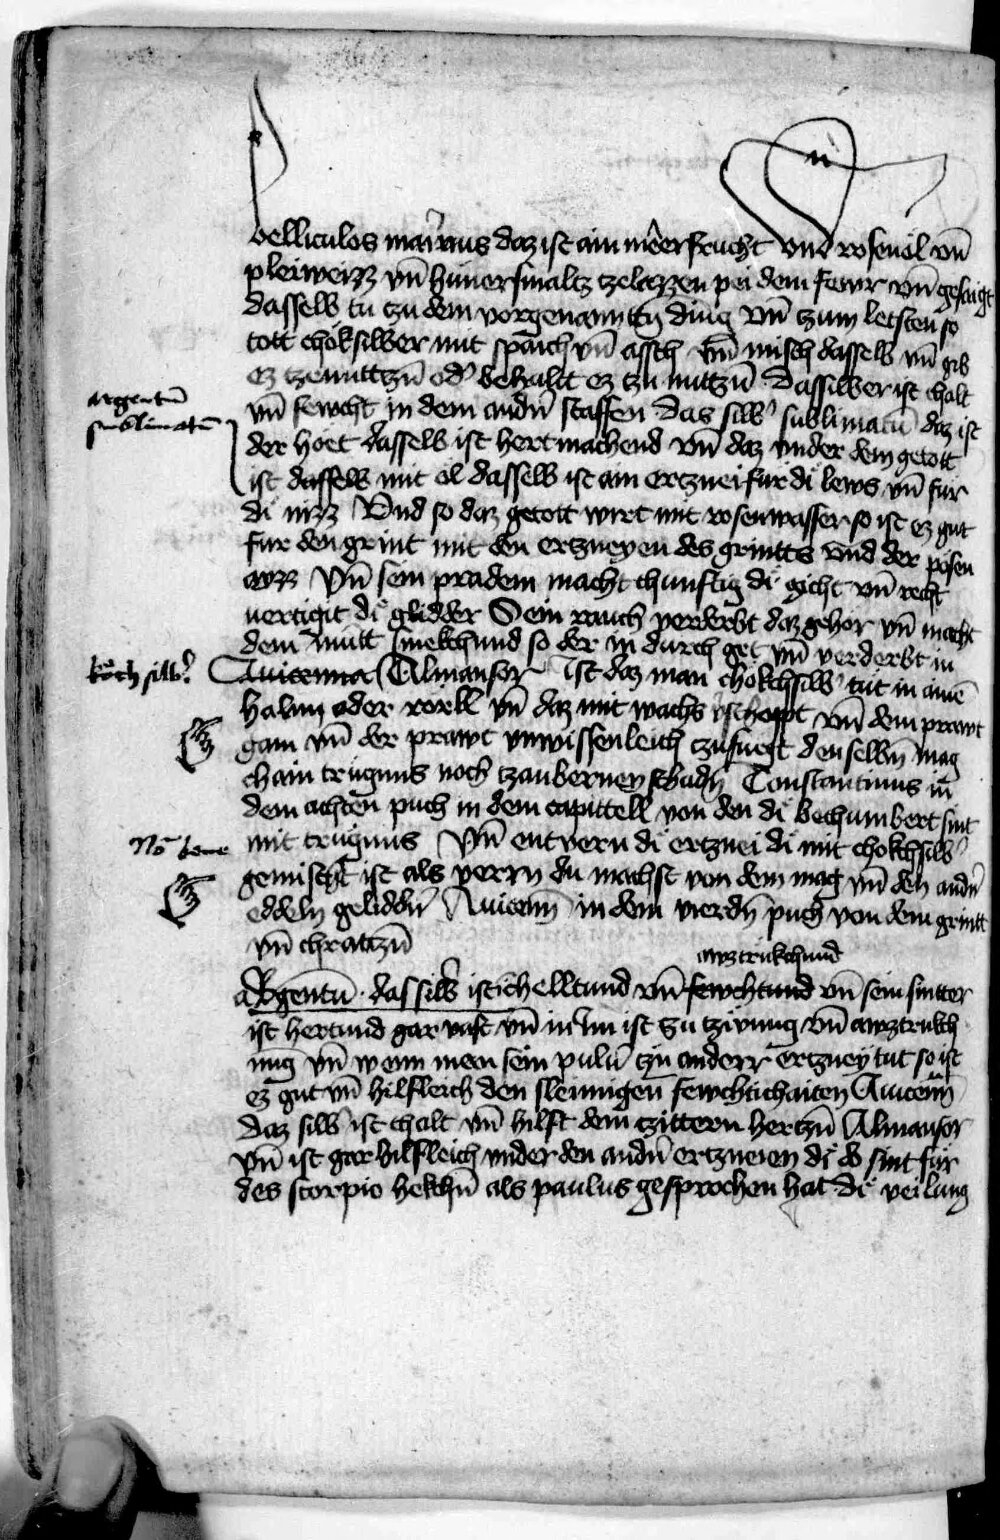 belliculos marinus daz ist ain meerfrucht vnd rosenöl vn̄
pleiweizz vn̄ hünersmaltz zelazzen pei dem fewr vn̄ gesaigt
dasselb tu tzu dem vorgenanntn̄ ding vn̄ tzum letsten so
tott choksilber mit spaich vn̄ assch vn̄ misch dasselb vn̄ gib
ez tzenuttzn̄ od' behaltt ez tzu nuttzn̄ dassilber ist chalt
argentū
vn̄ fewcht in dem andn̄ staffen das silb' sublimatū daz ist
sublimatū
der höet dasselb ist hertmachend vn̄ daz vnder dem getött
ist dasselb mit öl dasselb ist ain ertznei für di lews vn̄ für
di nizz Vnd so daz getott wirt mit rosenwasser so ist ez gut
fur den grint mit den ertzneyen des grintts vnd der pösen
ayzz Vn̄ sein pradem macht chunftig di gicht vn̄ recht
uertigit di glidder Sein rauch verderbt daz gehör vn̄ macht
dem mutt smekchund so der in durch get vn̄ verderbt in
köchsilb'
Auicenna Almansor Ist daz man chökchsilb' tut in ainē
halm oder rörll vn̄ daz mit wachs v'schoppt vn̄ dem prawt
gam vn̄ der prawt vnwissenleich tzufuegt denselbn̄ mag
chain trügnus noch tzauberney schadn̄ Constantinus in
dem achten puch in dem capittell von den di bechumbert sint
No bene
mit trügnus Vn̄ entvern di ertznei di mit chökchsilb'
gemischt ist als verrn du machst von dem mag vn̄ den andn̄
eddeln geliddn̄ Auicenn̄ in dem vierdn̄ puch von dem grintt
vn̄ chratzn̄
awztrükchund
aRgentū das silb' ist chelltund vn̄ fewchtund vn̄ sein sintter
ist hertund gar vast vn̄ in im ist zu tzihung vn̄ awztrukch
nng vn̄ wenn men sein pulu' tzu anderr ertzney tut so ist
ez gut vn̄ hilfleich den slemigen fewchtichaiten Auicenn̄
daz silb' ist chalt vn̄ hilft dem tzittern hertzn̄ Almansor
vn̄ ist gar hilfleich vnder den andn̄ ertzneien di do sint für
des scorpio hekchn̄ als paulus gesprochen hat di veilung